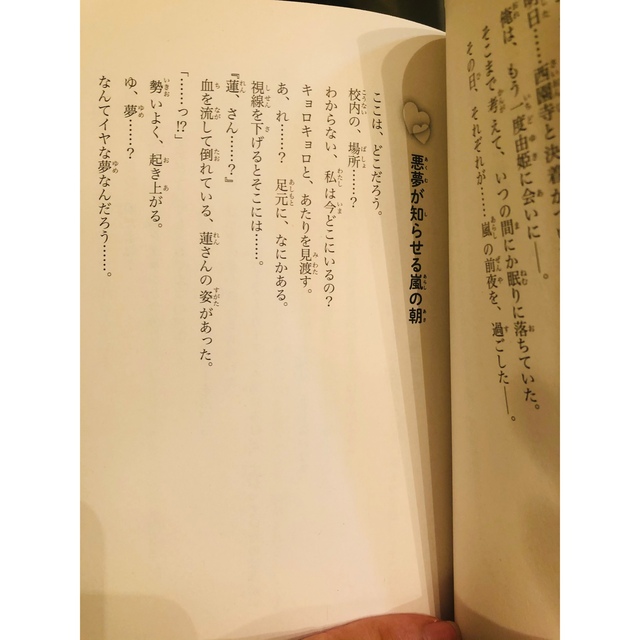 明日……西園寺と決着が
俺は、もう一度由姫に会いに――。
そこまで考えて、いつの間にか眠りに落ちていた。
その日、それぞれが……嵐の前夜を、過ごした――。
悪夢が知らせる嵐の朝
ここは、どこだろう。
校内の、場所……？
わからない、私は今どこにいるの？
キョロキョロと、あたりを見渡す。
あ、れ……？　足元に、なにかある。
視線を下げるとそこには……。
『蓮、さん……？』
血を流して倒れている、蓮さんの姿があった。
「……っ!?」
勢いよく、起き上がる。
ゆ、夢……？
なんてイヤな夢なんだろう……。